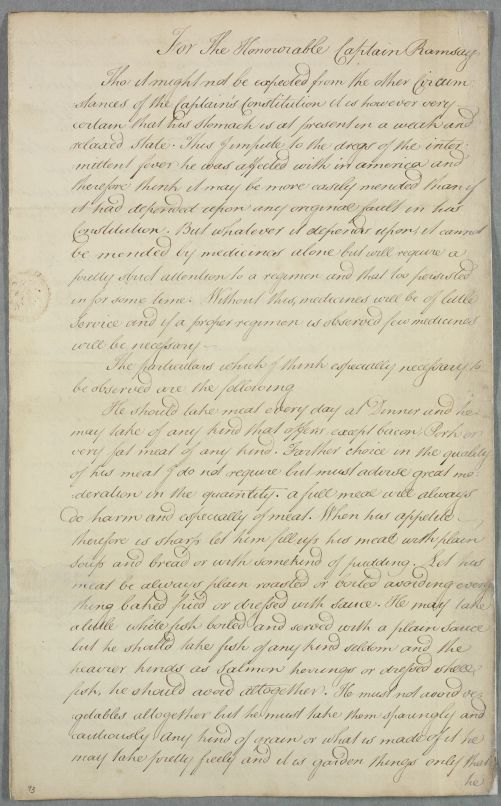 For The Honourable Captain Ramsay
Tho it might not be expected from the other Circum
stances of the Captains Constitution it is however very
certain that his stomach is at present in a weak and
relaxed state. This I impute to the dregs of the inter
mittent fever he was affected with in america and
therefore think it may be more easily mended than if
it had depended upon any original fault in his
Constitution. But whatever it depends upon, it cannot
be mended by medicines alone but will require a
pretty strict attention to a regimen and that too persisted
in for some time. Without this, medicines will be of little
Service and if a proper regimen is observed few medicines
will be necessary —
The particulars which I think especially necessary to
be observed are the following
He should take meat every day at Dinner and he
may take of any kind that offers except bacon Pork or
very fat meat of any kind. Farther choice in the quality
of his meat I do not require but must advise great mo
deration in the quaintity. a full meal will always
do harm and especially of meat. When his appetite
therefore is sharp let him fill up his meal with plain
soups and bread or with some kind of pudding. Let his
meat be always plain roasted or boiled avoiding every
thing baked fried or dressed with sauce. He may take
a little white fish boiled and served with a plain sauce
but he should take fish of any kind seldom and the
heavier kinds as Salmon herrings or dressed shell
fish, he should avoid altogether. He must not avoid ve
getables altogether but he must take them sparingly and
cautiously Any kind of grain or what is made of it he
may take pretty freely and it is garden things only that
he
93